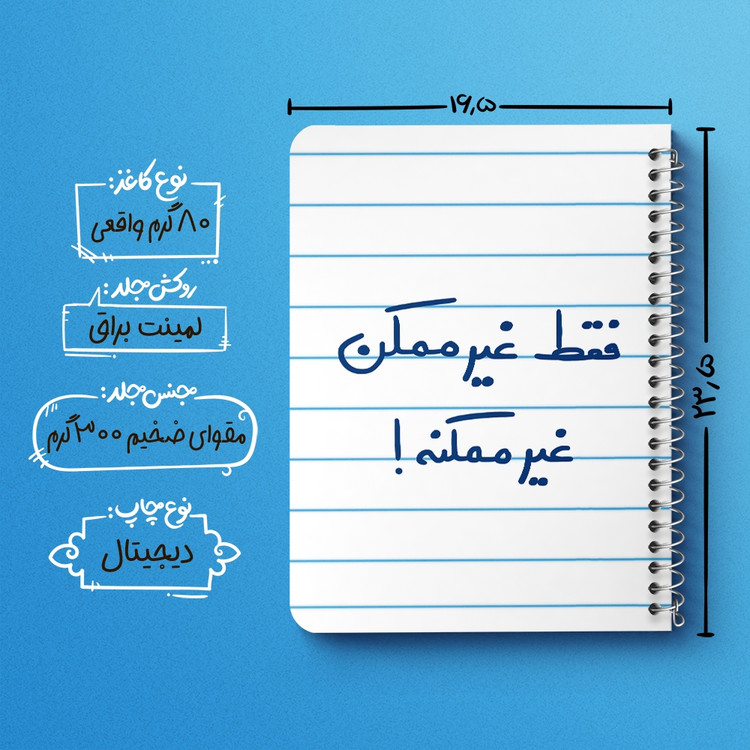 ۱۹,۵
۲۳,۵
فقط غیرممکن
غیرممکنه!
نوع کاغذ:
۸۰ گرم واقعی
روکش جلد:
لمینت براق
جنس جلد:
مقوای ضخیم ۳۰۰ گرم
نوع چاپ:
دیجیتال